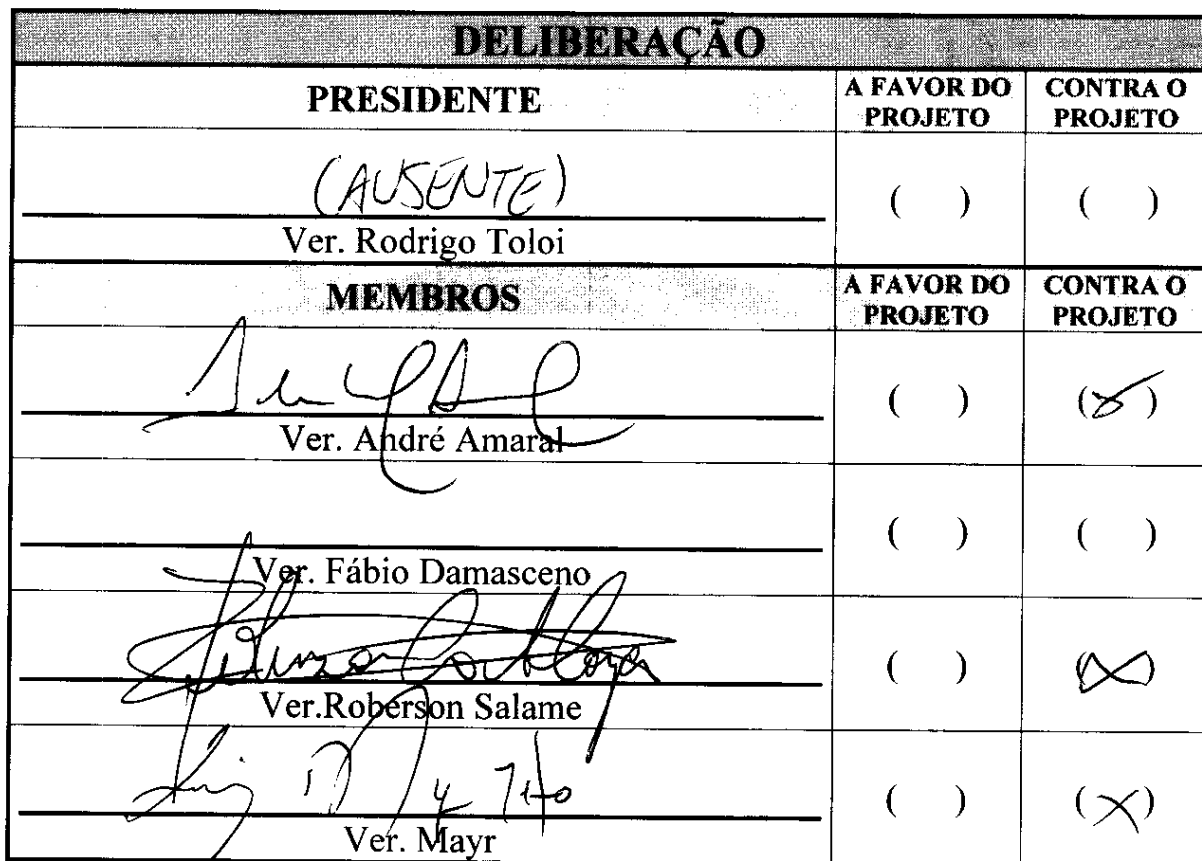 DELIBERAÇÃO
PRESIDENTE
A FAVOR DO PROJETO
CONTRA O PROJETO
(AUSENTE)
Ver. Rodrigo Toloi
( )
( )
MEMBROS
A FAVOR DO PROJETO
CONTRA O PROJETO
Ver. André Amaral
( )
(X)
Ver. Fábio Damasceno
( )
( )
Ver.Roberson Salame
( )
(X)
Ver. Mayr
( )
(X)